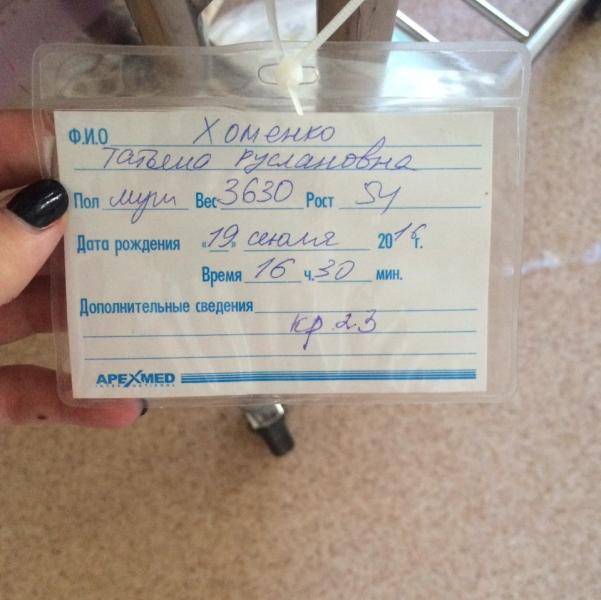 Ф.И.О Хоменко
Татьяна Руслановна
Пол муж Вес 3630 Рост 54
Дата рождения «19» июля 2016г.
Время 16 ч. 30 мин.
Дополнительные сведения
кр 23
APEXMED
INTERNATIONAL